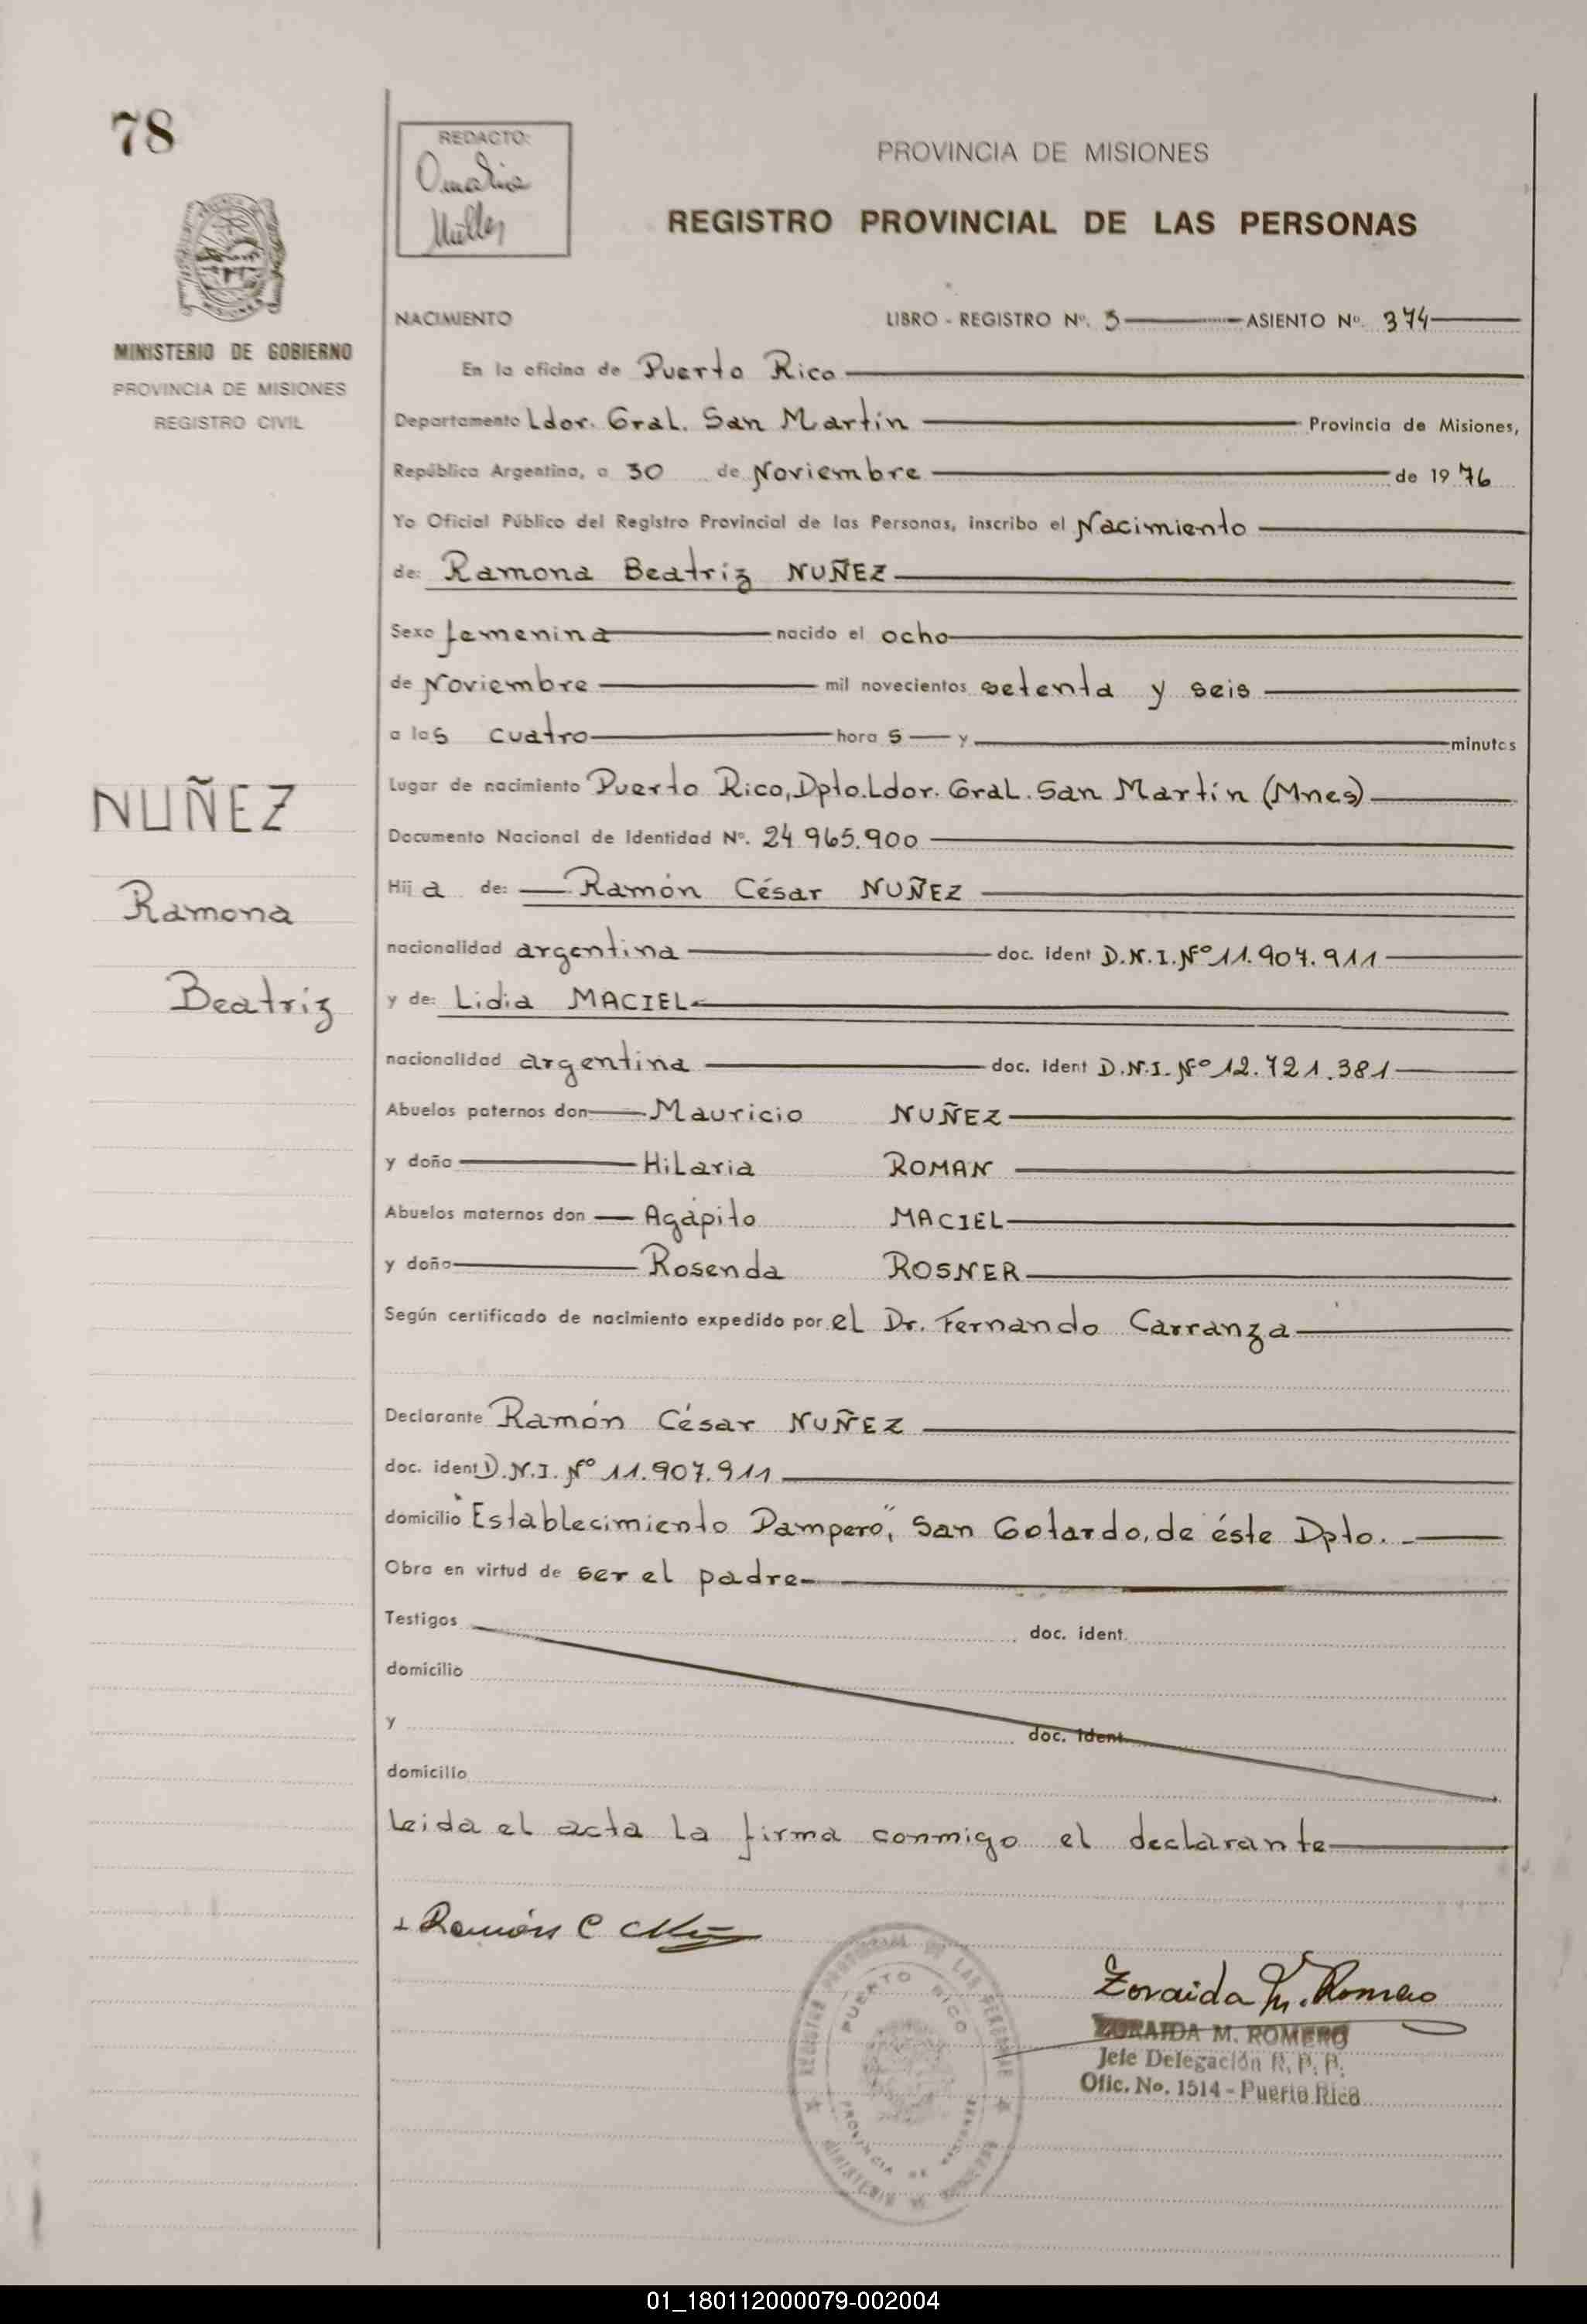 78
REDACTO:
Müller
PROVINCIA DE MISIONES
REGISTRO PROVINCIAL DE LAS PERSONAS
MISIONES
MINISTERIO DE GOBIERNO
PROVINCIA DE MISIONES
REGISTRO CIVIL
NACIMIENTO LIBRO - REGISTRO Nº. 3 ASIENTO Nº. 374
En la oficina de Puerto Rico
Departamento Ldor. Gral. San Martín Provincia de Misiones,
República Argentina, a 30 de Noviembre de 1976
Yo Oficial Público del Registro Provincial de las Personas, inscribo el Nacimiento
de: Ramona Beatriz NUÑEZ
Sexo femenina nacido el ocho
de Noviembre mil novecientos setenta y seis
a las cuatro hora s y minutos
Lugar de nacimiento Puerto Rico, Dpto. Ldor. Gral. San Martín (Mnes)
Documento Nacional de Identidad Nº. 24.965.900
Hij a de: Ramón César NUÑEZ
nacionalidad argentina doc. ident D.N.I. Nº 11.907.911
y de: Lidia MACIEL
nacionalidad argentina doc. ident D.N.I. Nº 12.721.381
Abuelos paternos don Mauricio NUÑEZ
y doña Hilaria ROMAN
Abuelos maternos don Agápito MACIEL
y doña Rosenda ROSNER
Según certificado de nacimiento expedido por el Dr. Fernando Carranza
Declarante Ramón César NUÑEZ
doc. ident D.N.I. Nº 11.907.911
domicilio "Establecimiento Pampero", San Gotardo, de éste Dpto.
Obra en virtud de ser el padre
Testigos doc. ident.
domicilio
y doc. ident.
domicilio
Leida el acta la firma conmigo el declarante
NUÑEZ
Ramona
Beatriz
Ramón C
REGISTRO PROVINCIAL DE LAS PERSONAS
PUERTO RICO
PROVINCIA DE MISIONES
Zoraida M. Romero
ZORAIDA M. ROMERO
Jefe Delegación R. P. P.
Ofic. No. 1514 - Puerto Rico
01_180112000079-002004